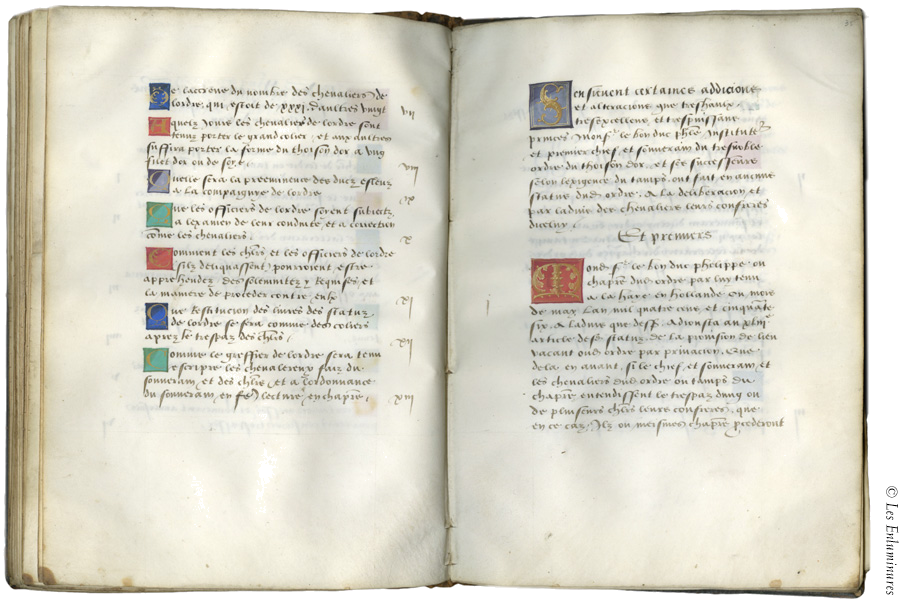 De lacroue du nombre des chevaliers de
lordre, qui estoit de xxxi. dautres vingt
VII
Quelz Jours les chevaliers de lordre sont
tenuz porter le grand colier, et aux aultres
suffira porter la forme du thoison dor a ung
fillet dor ou de soye.
VIII
Quelle sera la preeminence des ducz esleuz
a la compaignie de lordre
IX
Que les officiers de lordre seront subiectz
a lexamen de leur conduite, et a correction
come les chevaliers.
X
Comment les chlrs et les officiers de lordre
silz deliquassent, pourroient estre
apprehendez. Des solemnitez y Requises, et
la maniere de proceder contre eulx
XI
Que Restitucion des livres des statuz
de lordre se fera comme des coliers
apres le trespaz des chlrs.
XII
Comme le greffier de lordre sera tenu
escripre les chevalereux faiz du
souverain, et des chlrs, et a lordonnance
du souverain, en lecture, en chapre.
XIII
35
Sensuivent certaines addicions
et alteracions que treshaulx,
tresexcellens, et trespuissans
princes Monsr le bon duc phle Instituteur
et premier chief, et souverain du tresnoble
ordre du thoison dor, et ses successeurs
selon lexigence du tamps, ont fait en aucuns
statuz dud. ordre. A la deliberacion et
par ladvis des chevaliers leurs confreres
dicelluy
Et premiers
Mond. sr le bon duc philippe ou
chapre dud. ordre par luy tenu
a la haye en hollande ou mois
de may Lan mil quatre cens et cinquante
six. A ladvis que dess. Adiousta au xliiie
article desd. statuz de la provision de lieu
vacant oud. ordre par privacion. Que
dela en avant, si le chief, et souverain, et
les chevaliers dud. ordre ou tamps du
chapre entendissent le trespaz dung ou
de plusieurs chlrs leurs confreres, que
en ce caz, Ilz ou mesmes chapre pcederont
© Les Enluminures